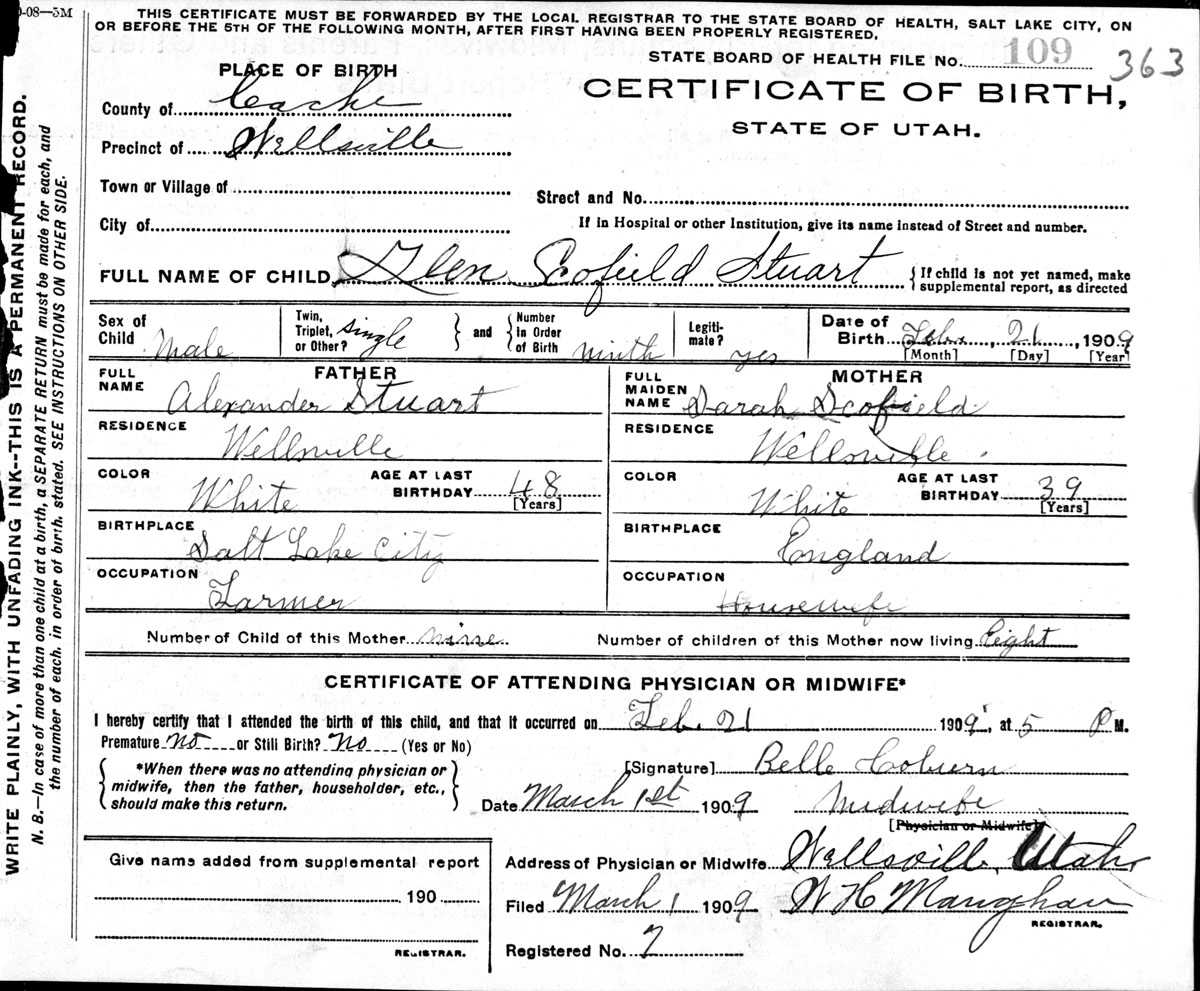 0-08—5M
THIS CERTIFICATE MUST BE FORWARDED BY THE LOCAL REGISTRAR TO THE STATE BOARD OF HEALTH, SALT LAKE CITY, ON
OR BEFORE THE 5TH OF THE FOLLOWING MONTH, AFTER FIRST HAVING BEEN PROPERLY REGISTERED.
STATE BOARD OF HEALTH FILE No. 109 363
PLACE OF BIRTH
CERTIFICATE OF BIRTH,
STATE OF UTAH.
County of Cache
Precinct of Wellsville
Town or Village of
Street and No.
City of
If in Hospital or other Institution, give its name instead of Street and number.
FULL NAME OF CHILD Glen Scofield Stuart { If child is not yet named, make supplemental report, as directed
Sex of Child Male
Twin, Triplet, or Other? single } and { Number in Order of Birth ninth
Legitimate? yes
Date of Birth Feb. , 21 , 1909
[Month] [Day] [Year]
FATHER
FULL NAME Alexander Stuart
RESIDENCE Wellsville
COLOR White AGE AT LAST BIRTHDAY 48 [Years]
BIRTHPLACE Salt Lake City
OCCUPATION Farmer
MOTHER
FULL MAIDEN NAME Sarah Scofield
RESIDENCE Wellsville
COLOR White AGE AT LAST BIRTHDAY 39 [Years]
BIRTHPLACE England
OCCUPATION Housewife
Number of Child of this Mother nine Number of children of this Mother now living Eight
CERTIFICATE OF ATTENDING PHYSICIAN OR MIDWIFE*
I hereby certify that I attended the birth of this child, and that it occurred on Feb. 21 1909, at 5 P M.
Premature No or Still Birth? No (Yes or No)
{ *When there was no attending physician or
midwife, then the father, householder, etc.,
should make this return. }
[Signature] Belle Coburn
Date March 1st 1909 Midwife
[Physician or Midwife]
Give name added from supplemental report
190
REGISTRAR.
Address of Physician or Midwife Wellsville, Utah
Filed March 1 1909 W H Maughan
REGISTRAR.
Registered No. 7
WRITE PLAINLY, WITH UNFADING INK--THIS IS A PERMANENT RECORD.
N. B.—In case of more than one child at a birth, a SEPARATE RETURN must be made for each, and
the number of each. in order of birth, stated. SEE INSTRUCTIONS ON OTHER SIDE.